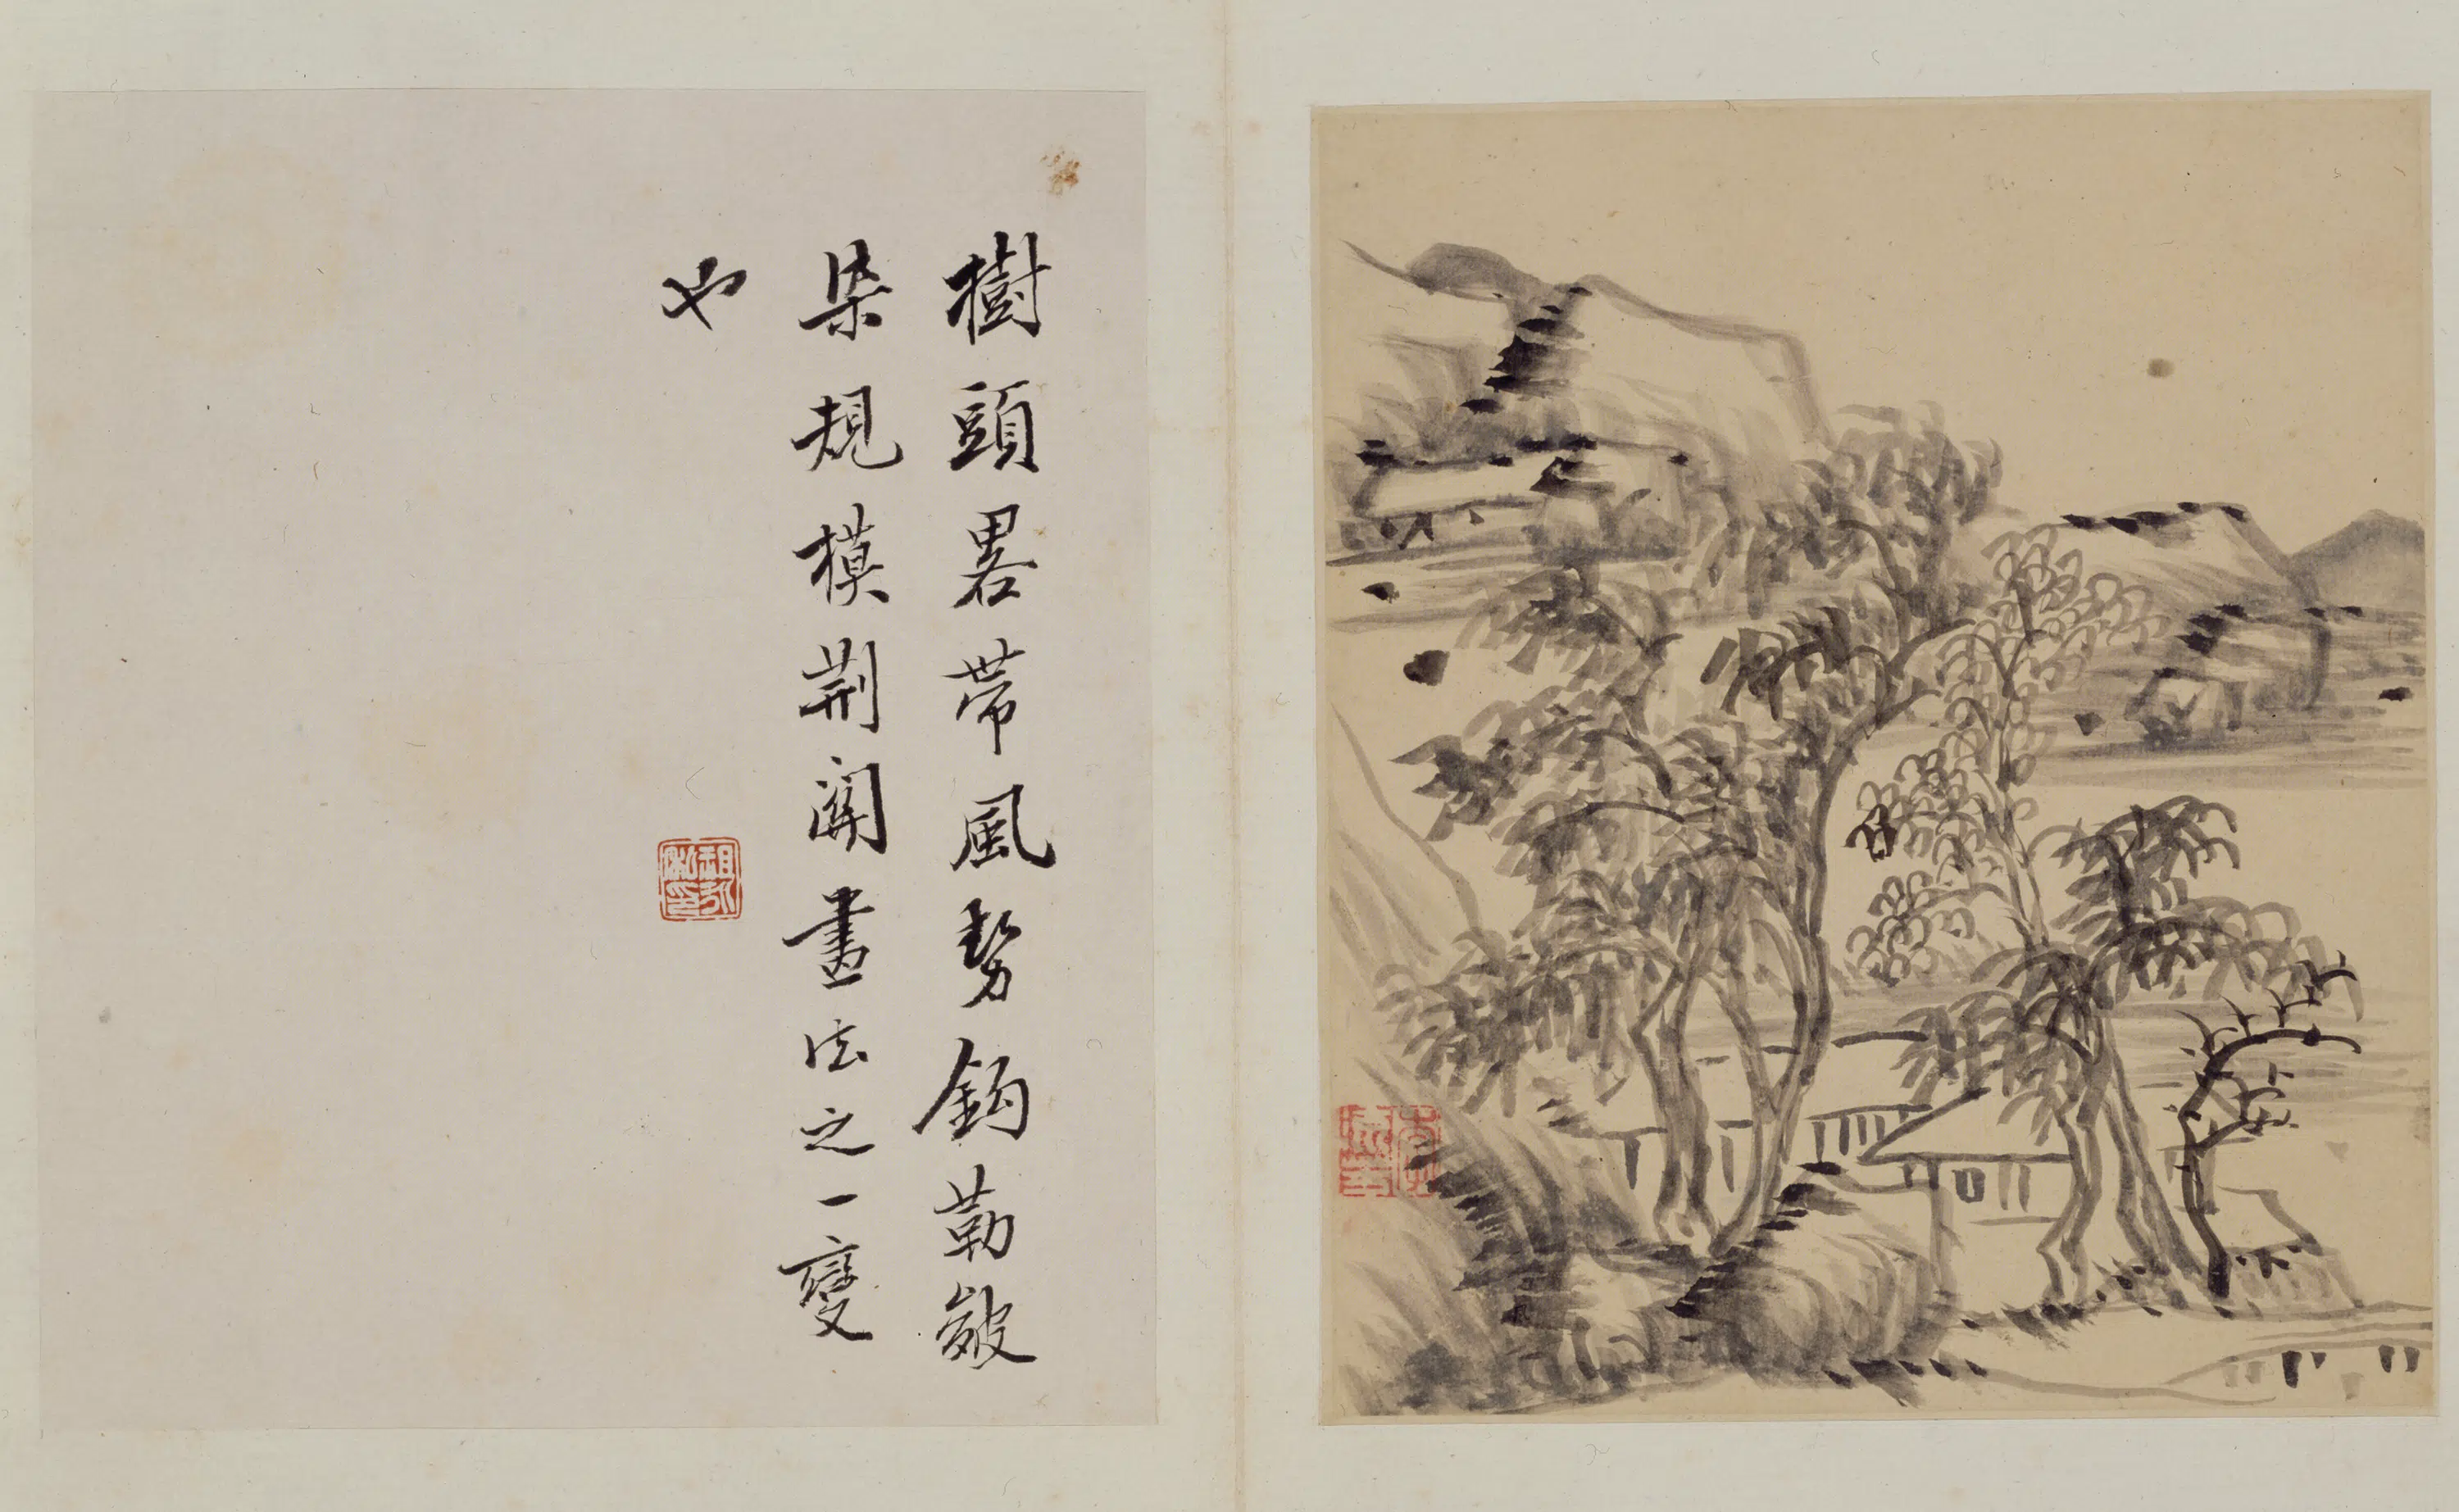 樹頭畧帶風勢鈎勒皴
染規模荆関畫法之一變
也